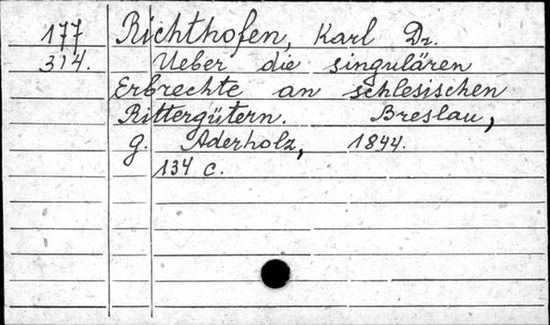 177 Richthofen, Karl Dr.
314. Ueber die singulären
Erbrechte an schlesischen
Rittergütern. Breslau,
g. Aderholz, 1844.
134 c.